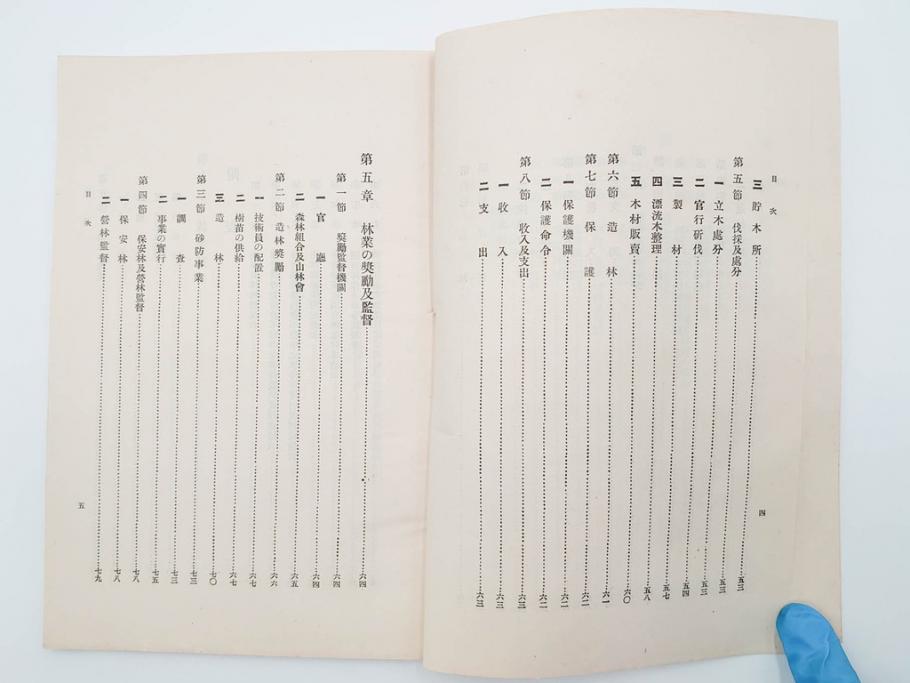 目次
三 貯木所……五三
第五節 伐採及處分……五三
一 立木處分……五三
二 官行斫伐……五四
三 製材……五七
四 漂流木整理……五八
五 木材販賣……六〇
第六節 造林……六一
第七節 保護……六二
一 保護機關……六二
二 保護命令……六二
第八節 收入及支出……六三
一 收入……六三
二 支出……六三
四
第五章 林業の奬勵及監督……六四
第一節 奬勵監督機關……六四
一 官廳……六四
二 森林組合及山林會……六五
第二節 造林奬勵……六六
一 技術員の配置……六七
二 樹苗の供給……六七
三 造林……七〇
第三節 砂防事業……七三
一 調査……七三
二 事業の實行……七五
第四節 保安林及營林監督……七八
一 保安林……七八
二 營林監督……七九
目次
五